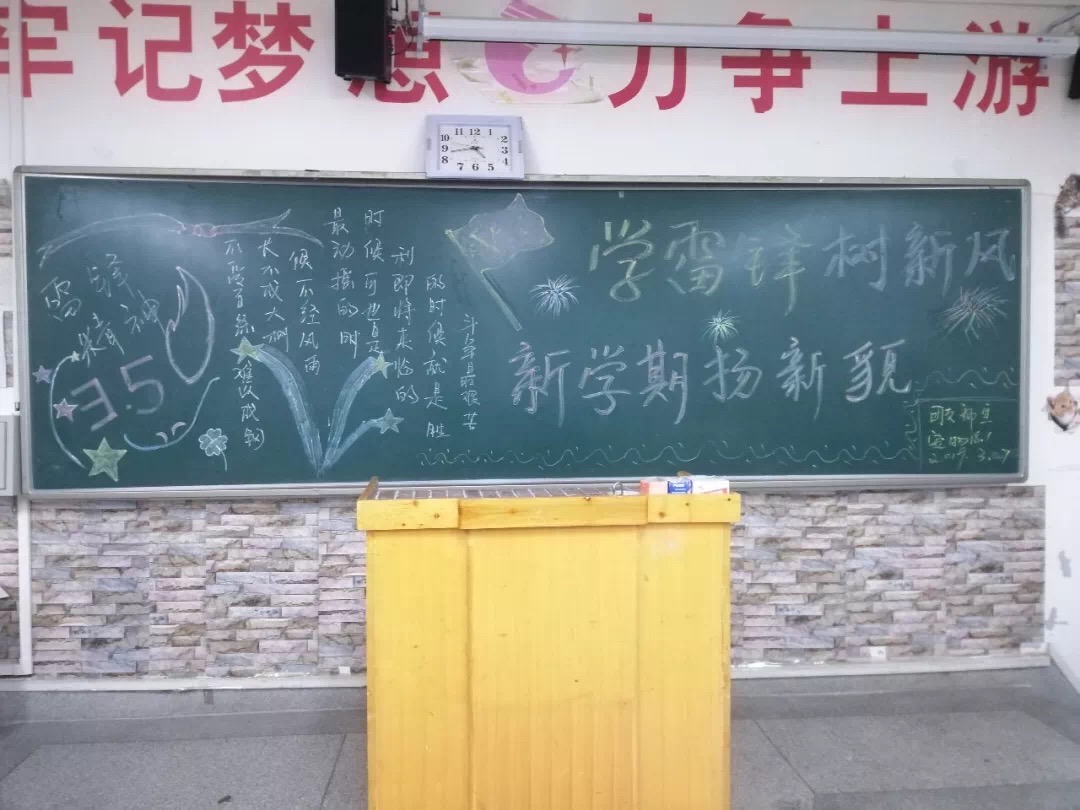 牢记梦想 力争上游
11 12 1
10 2
9 3
8 4
7 6 5
雷锋
精神
3.5
斗争最艰苦
的时候就是胜
利即将来临的
时候可也是
最动摇的时
候不经风雨
长不成大树
不受百练难以成钢
学雷锋树新风
新学期扬新貌
2019.3.07